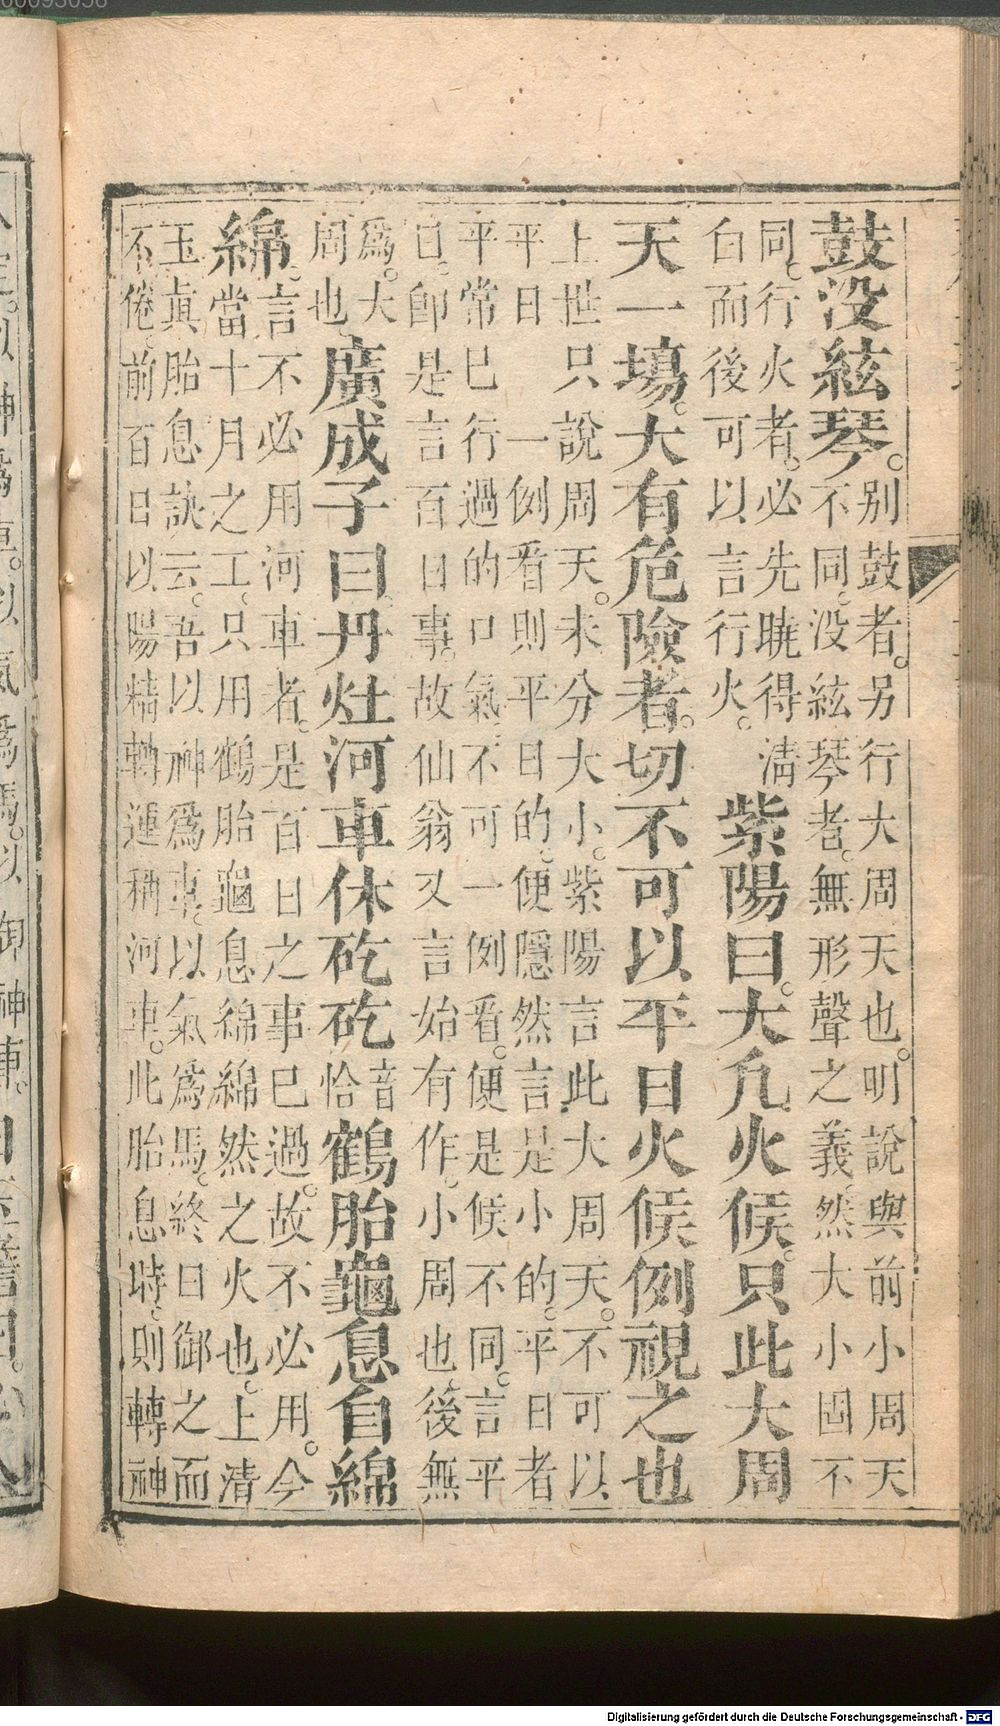 鼓没絃琴。别鼓者。另行大周天也。明說與前小周天
不同。没絃琴者。無形聲之義。然大小固不
同。行火者。必先曉得清
白而後可以言行火。紫陽曰。大凡火候。只此大周
天一塲。大有危險者。切不可以平日火候例視之也
上世只說周天。未分大小。紫陽言此大周天。不可以
平日一例看則平日的。便隱然言是小的。平日者
平常已行過的口氣。不可一例看。便是候不同。言平
日。卽是言百日事。故仙翁又言始有作。小周也。後無
爲。大
周也。廣成子曰。丹灶河車休矻矻音恰鶴胎龜息自綿
綿。言不必用河車者。是百日之事已過。故不必用。今
當十月之工。只用鶴胎龜息綿綿然之火也。上清
玉眞胎息訣云。吾以神爲車。以氣爲馬。終日御之而
不倦。前百日以陽精轉運稱河車。此胎息時。則轉神
Digitalisierung gefördert durch die Deutsche Forschungsgemeinschaft - DFG